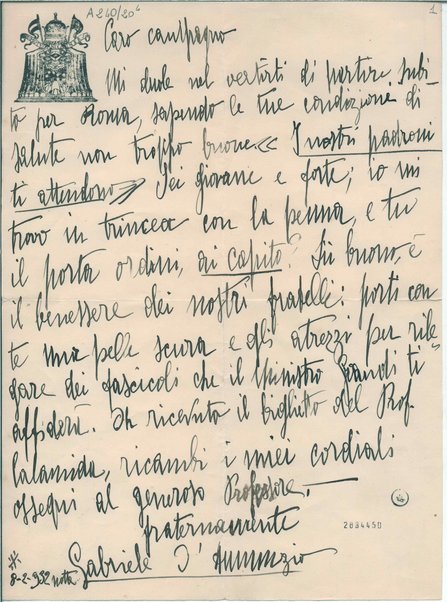 A240/20⁴
1
Caro compagno
Mi duole nel vertirti di partire subi-
to per Roma, sapendo le tue condizione di
salute non troppo buone. << I nostri padroni
ti attendono >> Sei giovane e forte; io mi
trovo in trincea con la penna, e tu
il porta ordini, ai capito? Sii buono, è
il benessere dei nostri fratelli: porti con
te una pelle scura e gli atrezzi per rile
gare dei fascicoli che il Ministro Grandi ti
affiderà. Ò ricevuto il biglietto del Prof.
Calamida, ricambi i miei cordiali
ossequi al generoso Professore.—
fraternamente
2834450
Gabriele D'Annunzio
8-2-932 notte